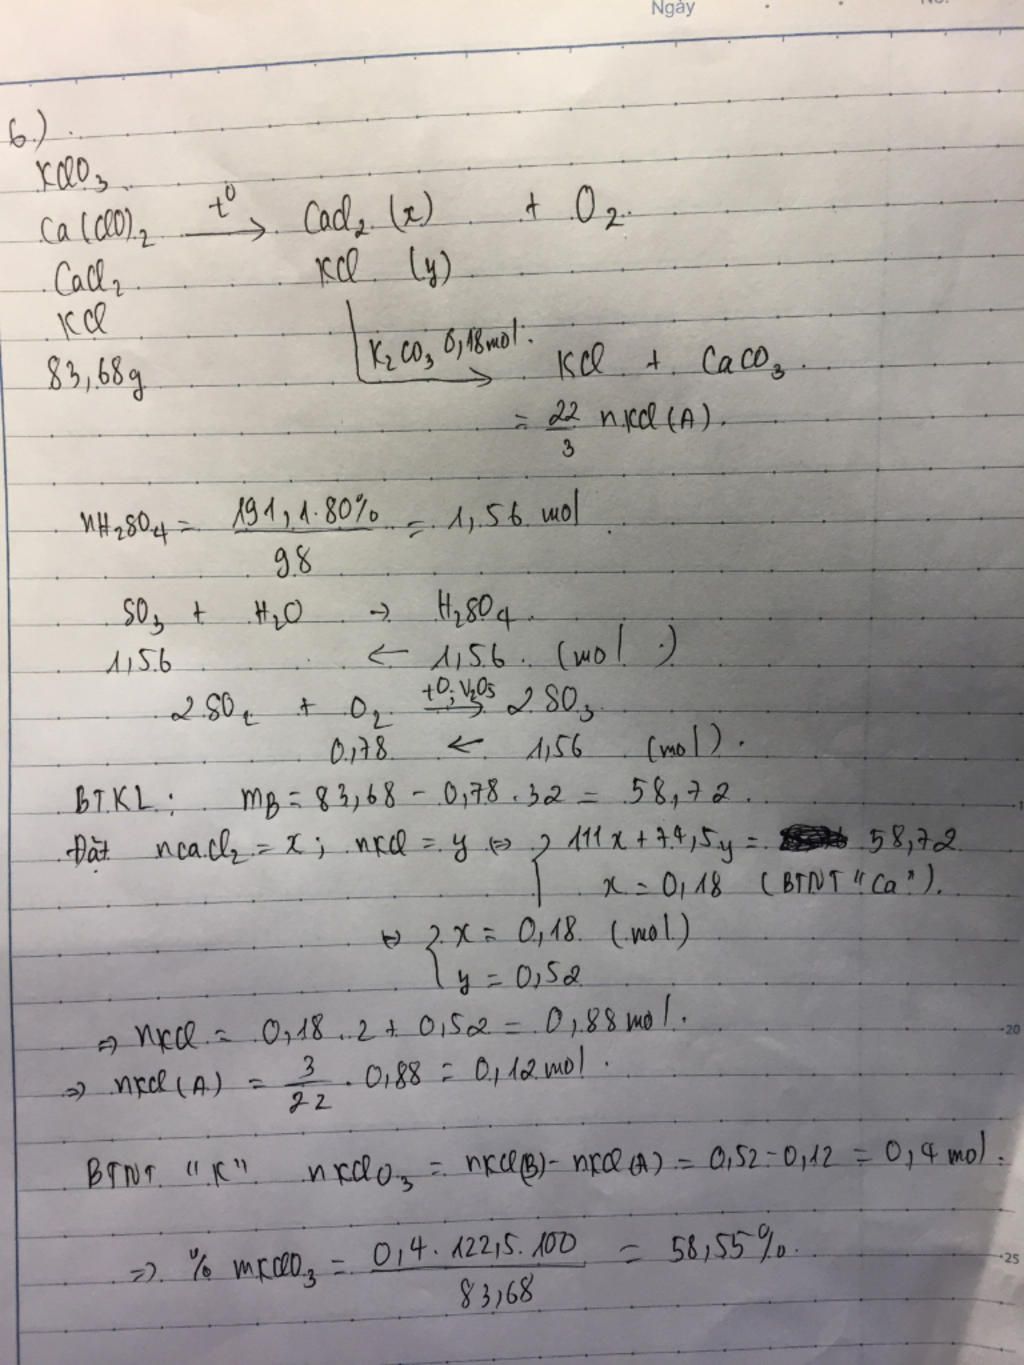 Ngày No.
6.)
KClO3
Ca(ClO)2 t⁰ → CaCl2 (x) + O2
CaCl2 KCl (y)
KCl
K2CO3 0,18mol.
83,68g KCl + CaCO3
= 22/3 nKCl(A).
nH2SO4 = 191,1.80%/98 = 1,56 mol
SO3 + H2O → H2SO4
1,56 ← 1,56. (mol)
2SO2 + O2 t⁰, V2O5 → 2SO3
0,78 ← 1,56 (mol).
BTKL: mB = 83,68 - 0,78.32 = 58,72.
Đặt nCaCl2 = x; nKCl = y ⇔ { 111x + 74,5y = 58,72
x = 0,18 (BTNT "Ca").
⇔ { x = 0,18. (mol)
y = 0,52
⇒ nKCl = 0,18.2 + 0,52 = 0,88mol.
⇒ nKCl(A) = 3/22 . 0,88 = 0,12mol.
BTNT "K" nKClO3 = nKCl(B) - nKCl(A) = 0,52 - 0,12 = 0,4mol.
⇒ % mKClO3 = 0,4.122,5.100/83,68 = 58,55%.
20
25